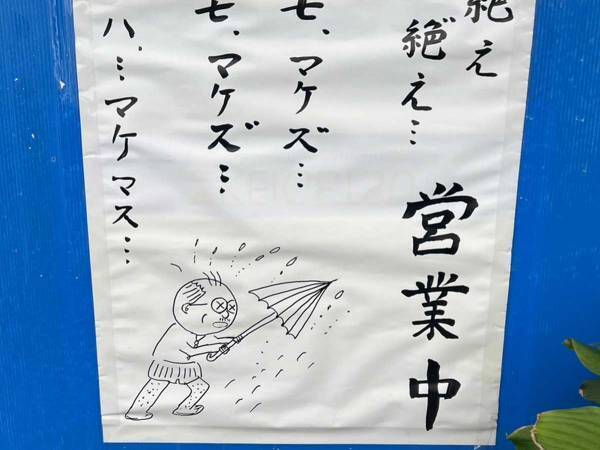 絶え
絶え…
営業中
モ、マケズ…
モ、マケズ…
ハ、…マケマス…